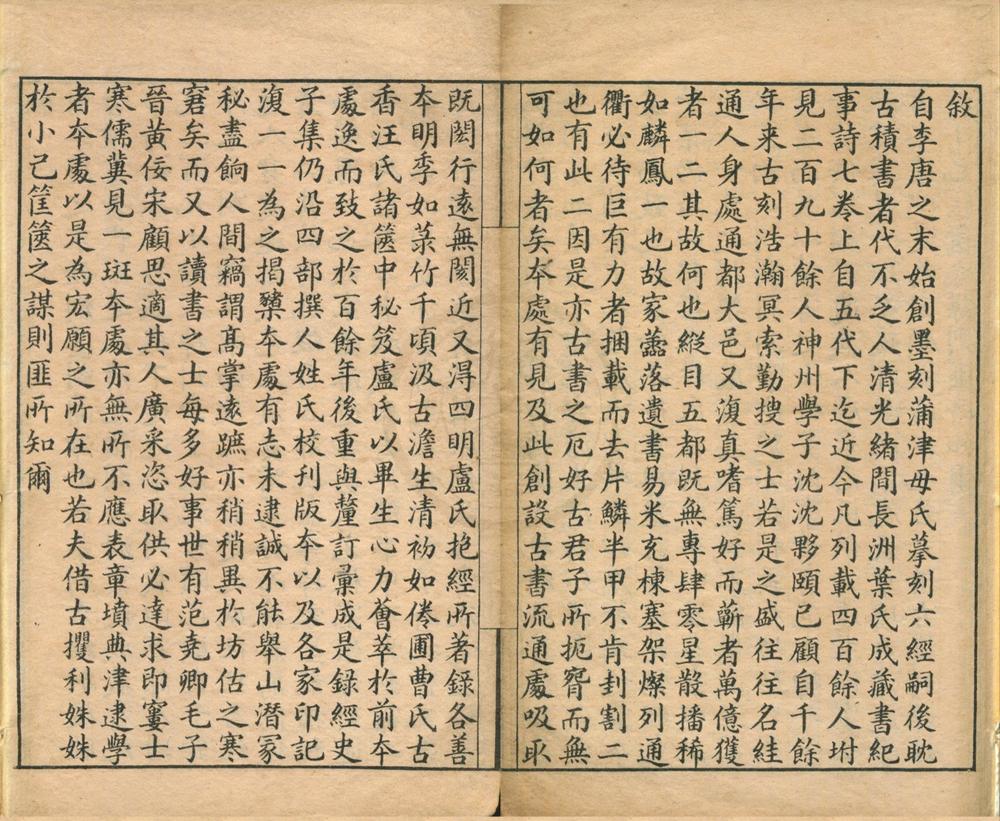 敘
自李唐之末始創墨刻蒲津毋氏摹刻六經嗣後眈
古積書者代不乏人清光緒間長洲葉氏成藏書紀
事詩七卷上自五代下迄近今凡列載四百餘人坿
見二百九十餘人神州學子沈沈夥頤已顧自千餘
年來古刻浩瀚冥索勤搜之士若是之盛往往名絓
通人身處通都大邑又復真嗜篤好而蘄者萬億獲
者一二其故何也縱目五都既無專肆零星散播稀
如麟鳳一也故家蠹落遺書易米充棟塞架燦列通
衢必待巨有力者捆載而去片鱗半甲不肯封割二
也有此二因是亦古書之厄好古君子所扼腕而無
可如何者矣本處有見及此創設古書流通處吸取
既閎行遠無閡近又得四明盧氏抱經所著錄各善
本明季如菉竹千頃汲古澹生清初如倦圃曹氏古
香汪氏諸篋中秘笈盧氏以畢生心力薈萃於前本
處逸而致之於百餘年後重與釐訂彙成是錄經史
子集仍沿四部撰人姓氏校刊版本以及各家印記
復一一為之揭櫫本處有志未逮誠不能舉山潛冢
秘盡餉人間竊謂高掌遠蹠亦稍稍異於坊估之寒
窘矣而又以讀書之士每多好事世有范堯卿毛子
晉黃佞宋顧思適其人廣采恣取供必達求即窶士
寒儒冀見一斑本處亦無所不應表章墳典津逮學
者本處以是為宏願之所在也若夫借古攫利姝姝
於小己筐篋之謀則匪所知爾